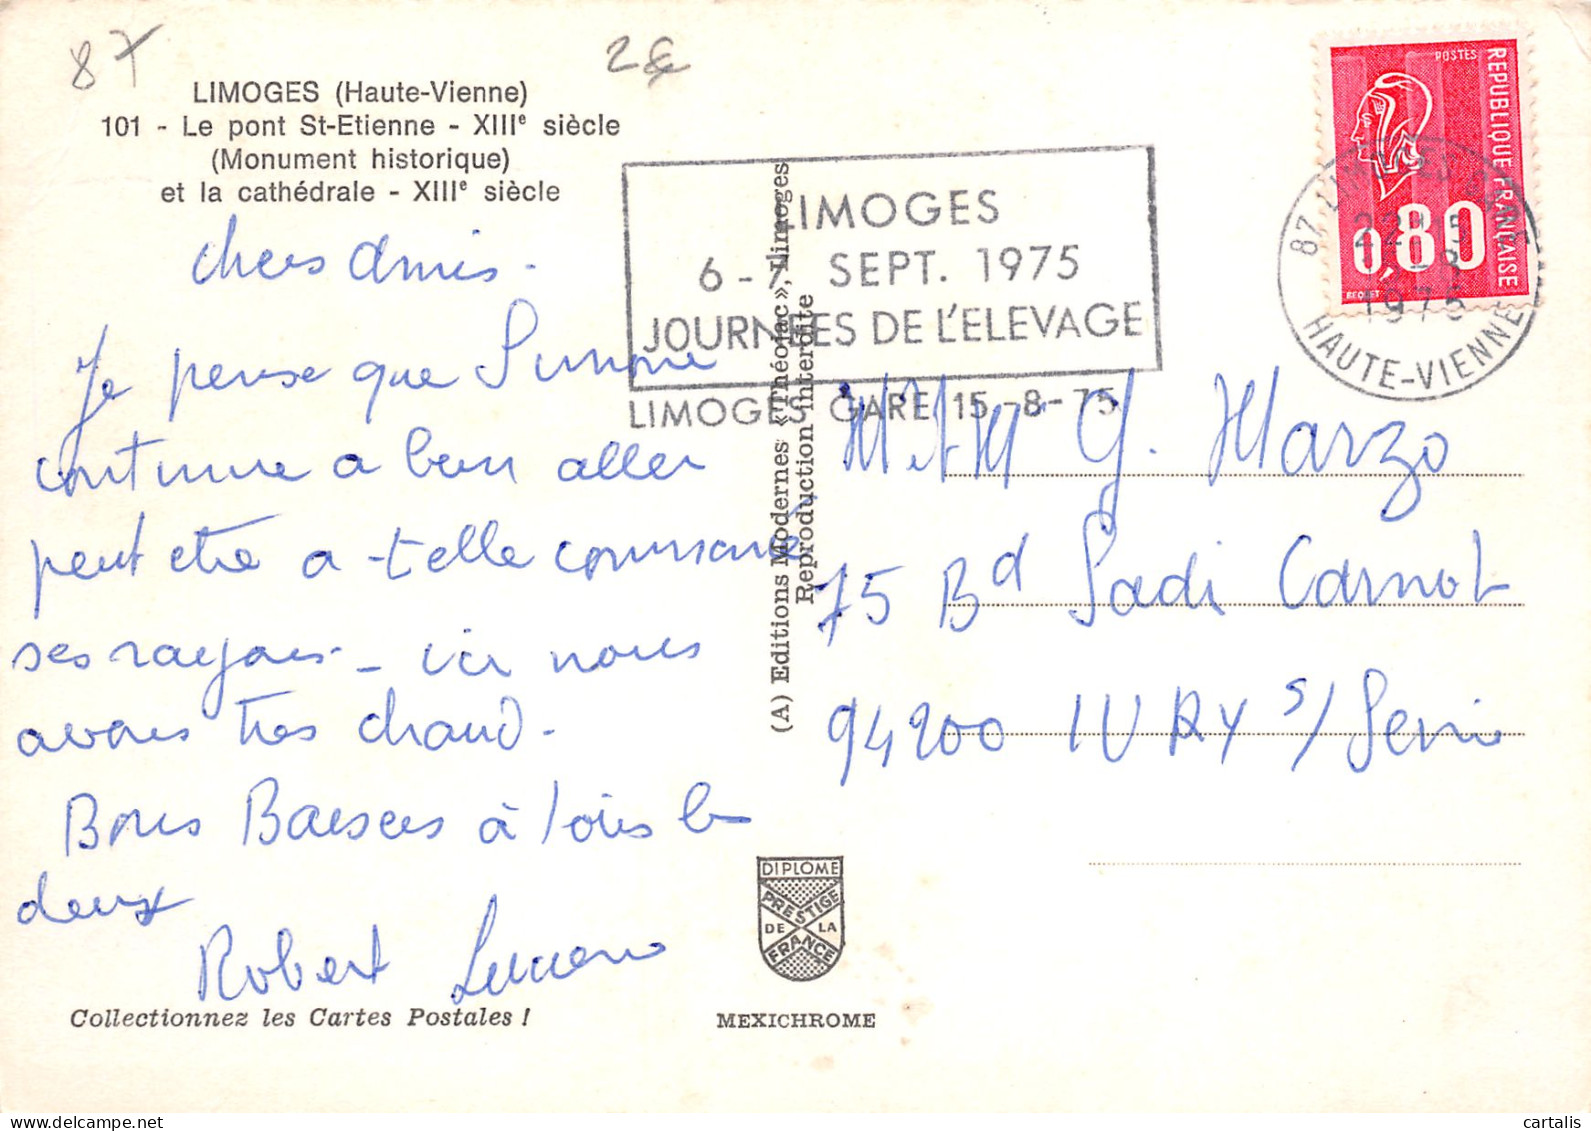 87
2€
LIMOGES (Haute-Vienne)
101 - Le pont St-Etienne - XIIIe siècle
(Monument historique)
et la cathédrale - XIIIe siècle
POSTES
REPUBLIQUE FRANÇAISE
0,80
BEQUET
LIMOGES
6 - 7 SEPT. 1975
JOURNEES DE L'ELEVAGE
LIMOGES GARE 15-8-75
87 LIMOGES GARE
22H15
15-8
1975
HAUTE-VIENNE
Chers Amis.
Je pense que
continue a bien aller
peut etre a-t-elle commencé
ses rayons - ici nous
avons tres chaud.
Bons Baisers à tous les
deux
Robert Lucienne
(A) Editions Modernes « Théojac », Limoges
Reproduction interdite
M. et Mme G. Marzo
75 Bd Sadi Carnot
94200 IVRY s/ Seine
DIPLOME
PRESTIGE
DE LA
FRANCE
Collectionnez les Cartes Postales !
MEXICHROME
cartalis
delcampe.net